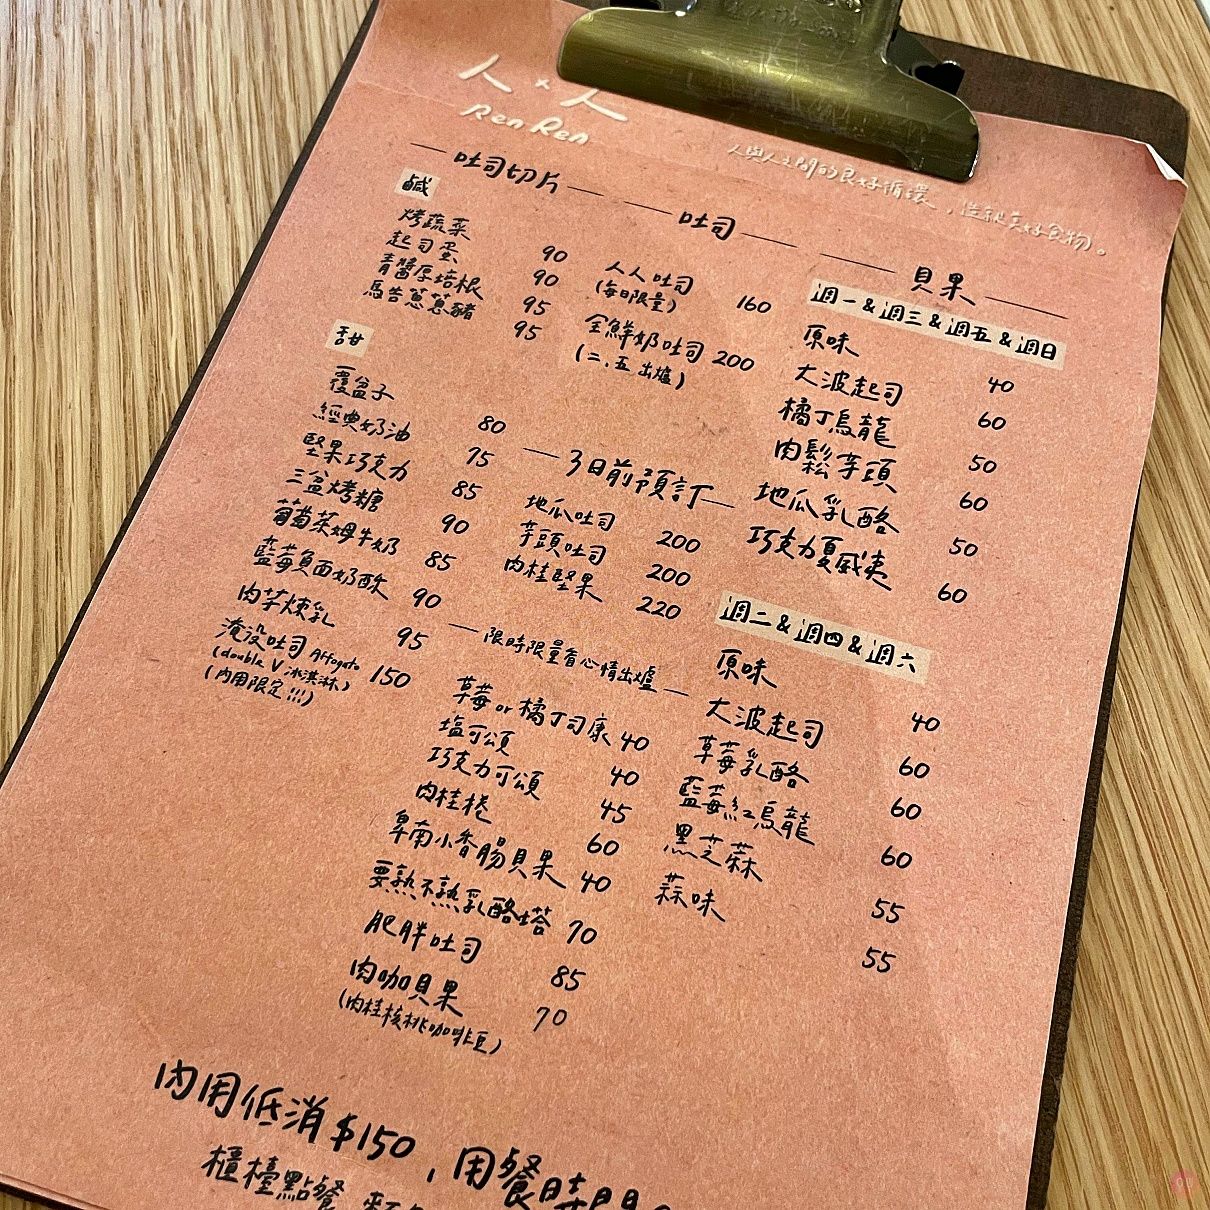 人×人
Ren Ren
人與人之間的良好循環，造就美好食物。
吐司切片
鹹
烤蔬菜 90
起司蛋 90
青醬厚培根 95
馬告蔥蔥豬 95
甜
覆盆子 80
經典奶油 75
堅果巧克力 85
三盆烤糖 90
葡萄萊姆牛奶 85
藍莓負面奶酥 90
肉芋煉乳 95
淹沒吐司 Affogato 150
(double V 冰淇淋)
(內用限定!!!)
吐司
人人吐司 160
(每日限量)
全鮮奶吐司 200
(二、五 出爐)
3日前預訂
地瓜吐司 200
芋頭吐司 200
肉桂堅果 220
限時限量看心情出爐
草莓 or 橘丁司康 40
塩可頌 40
巧克力可頌 45
肉桂捲 60
昇南小香腸貝果 40
要熟不熟乳酪塔 70
肥胖吐司 85
肉咖貝果 70
(肉桂核桃咖啡豆)
貝果
週一&週三&週五&週日
原味 40
大波起司 60
橘丁烏龍 50
肉鬆芋頭 60
地瓜乳酪 50
巧克力夏威夷 60
週二&週四&週六
原味 40
大波起司 60
草莓乳酪 60
藍莓紅烏龍 60
黑芝蔴 55
蒜味 55
內用低消$150，用餐時間
櫃檯點餐